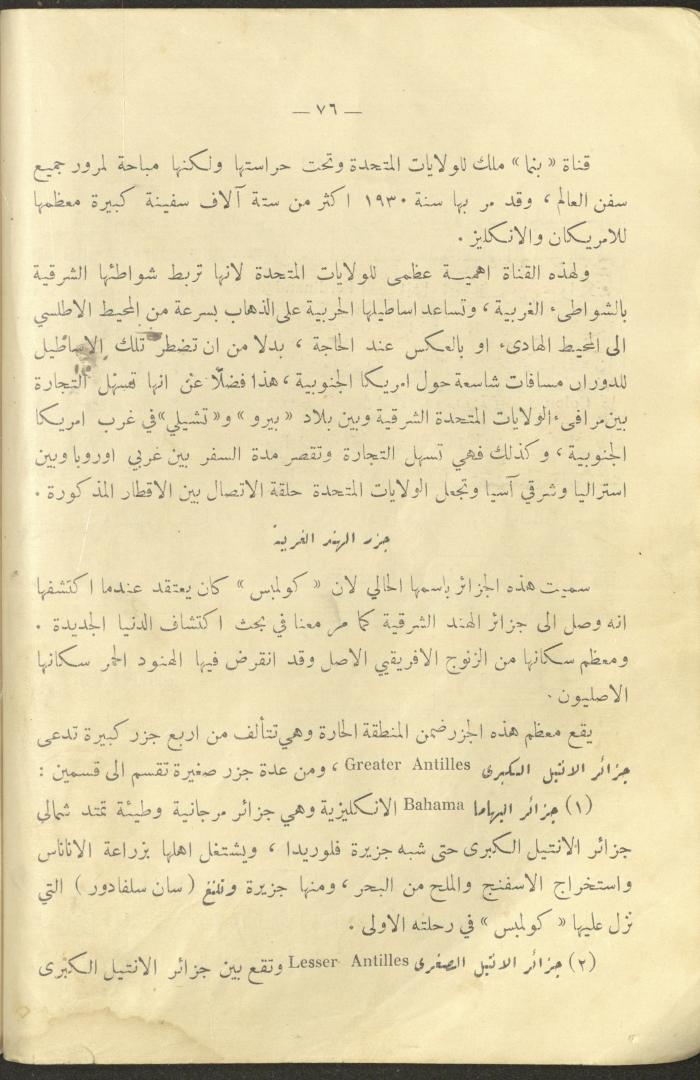 — ٧٦ —
قناة « بنما » ملك للولايات المتحدة وتحت حراستها ولكنها مباحة لمرور جميع
سفن العالم ، وقد مر بها سنة ١٩٣٠ اكثر من ستة آلاف سفينة كبيرة معظمها
للامريكان والانكليز .
ولهذه القناة اهمية عظمى للولايات المتحدة لانها تربط شواطئها الشرقية
بالشواطىء الغربية ، وتساعد اساطيلها الحربية على الذهاب بسرعة من المحيط الاطلسي
الى المحيط الهادىء او بالعكس عند الحاجة ، بدلا من ان تضطر تلك الاساطيل
للدوران مسافات شاسعة حول امريكا الجنوبية ، هذا فضلًا عن انها تسهل التجارة
بين مرافىء الولايات المتحدة الشرقية وبين بلاد « بيرو » و « تشيلي » في غرب امريكا
الجنوبية ، وكذلك فهي تسهل التجارة وتقصر مدة السفر بين غربي اوروبا وبين
استراليا وشرقي آسيا وتجعل الولايات المتحدة حلقة الاتصال بين الاقطار المذكورة .
جزر الهند الغربية
سميت هذه الجزائر باسمها الحالي لان « كولمبس » كان يعتقد عندما اكتشفها
انه وصل الى جزائر الهند الشرقية كما مر معنا في بحث اكتشاف الدنيا الجديدة .
ومعظم سكانها من الزنوج الافريقيي الاصل وقد انقرض فيها الهنود الحمر سكانها
الاصليون .
يقع معظم هذه الجزر ضمن المنطقة الحارة وهي تتألف من اربع جزر كبيرة تدعى
جزائر الانتيل الكبرى Greater Antilles ، ومن عدة جزر صغيرة تقسم الى قسمين :
(١) جزائر البهاما Bahama الانكليزية وهي جزائر مرجانية وطيئة تمتد شمالي
جزائر الانتيل الكبرى حتى شبه جزيرة فلوريدا ، ويشتغل اهلها بزراعة الاناناس
واستخراج الاسفنج والملح من البحر ، ومنها جزيرة وتلنغ ( سان سلفادور ) التي
نزل عليها « كولمبس » في رحلته الاولى .
(٢) جزائر الانتيل الصغرى Lesser Antilles وتقع بين جزائر الانتيل الكبرى